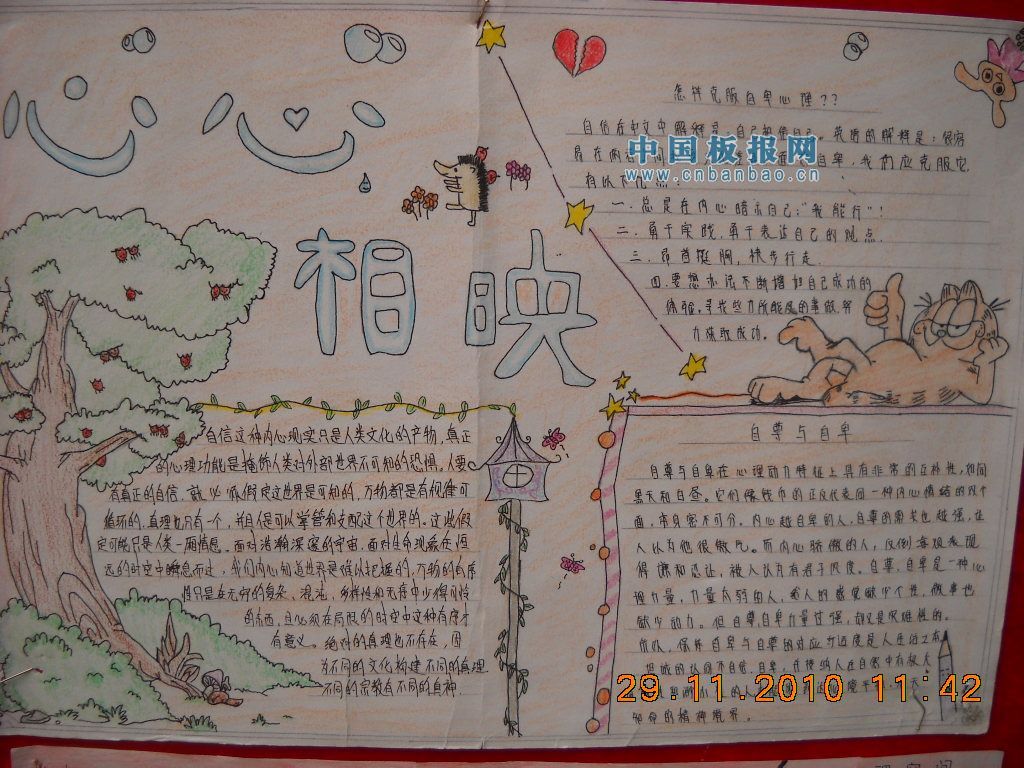 心心
相映
怎样克服自卑心理??
自信在中文中解释是:自己相信自己。英语的解释是:很容
自卑,我们应克服它,
有以下优点:
一.总是在内心暗示自己:“我能行”!
二.勇于实践,勇于表达自己的观点.
三.昂首挺胸,快步行走.
四.要想办法不断增加自己成功的
体验。寻找些力所能及的事做,努
力获取成功。
中国板报网
www.cnbanbao.cn
自信这种内心现实只是人类文化的产物,真正
的心理功能是掩饰人类对外部世界不可知的恐惧。人要
有真正的自信,就必须假定这世界是可知的,万物都是有规律可
循环的,真理也只有一个,并且是可以掌管和支配这个世界的。这些假
定可能只是人类一厢情愿。面对浩瀚深邃的宇宙,面对生命现象在恒
远的时空中瞬息而过,我们内心知道世界是难以把握的,万物的有序
性只是在无穷的复杂、混沌,多样性和无序中少得可怜
的东西,且必须在局限的时空中这种有序才
有意义。绝对的真理也不存在,因
为不同的文化构建不同的真理
不同的宗教有不同的真神.
自尊与自卑
自尊与自卑在心理动力特征上具有非常的互补性,如同
黑天和白昼。它们像钱币的正反代表同一种内心情结的两个
面,亲身密不可分。内心越自卑的人,自尊的需求也越强,让
人认为他很傲气。而内心骄傲的人,反倒客观表现
得谦和忍让,被人认为有君子风度。自尊、自卑是一种心
理力量,力量太弱的人,给人的感觉缺少个性,做事也
缺少动力。但自尊自卑力量过强,却是很难胜的.
所以,保持自卑与自尊的对应
知命的精神境界。
29.11.2010 11:42